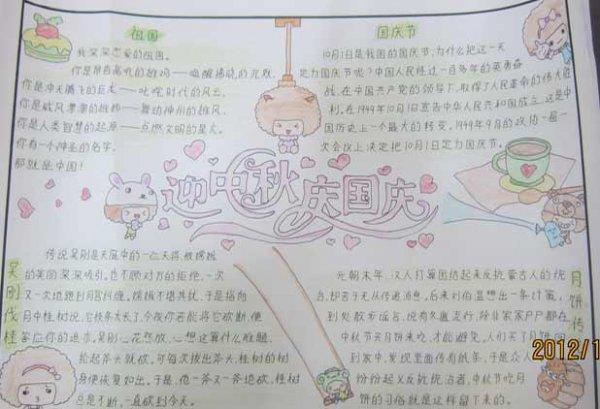 祖国
我深深恋爱的祖国。
你是昂首高吭的雄鸡——唤醒拂晓的沉默,
你是冲天腾飞的巨龙——叱咤时代的风云,
你是威风凛凛的雄狮——舞动神州的雄风,
你是人类智慧的起源——点燃文明的星火。
你有一个神圣的名字,
那就是中国!
国庆节
10月1日是我国的国庆节,为什么把这一天
定为国庆节呢?中国人民经过一百多年的英勇奋
战,在中国共产党的领导下,取得了人民革命的伟大胜
利。在1949年10月1日宣告中华人民共和国成立,这是中
国历史上一个最大的转变。1949年9月的政协一届一
次会议上决定把10月1日定为国庆节。
迎中秋 庆国庆
吴刚伐桂
传说吴刚是天庭中的一位天将,被嫦娥
的美图深深吸引,也不顾对方的拒绝,一次
又一次地跑到月宫纠缠,嫦娥不堪其扰,于是指向
月中桂树说:它枝条太长了,今夜你若能将它砍断,便
答应你的追求。吴刚心花怒放,心想这算什么难题,
抡起斧头就砍,可每次拔出斧头,桂树的树
身便恢复如出。于是,他一斧又一斧地砍,桂树
总是不断,一直砍到今天。
月饼传
元朝末年,汉人打算团结起来反抗蒙古人的统
治,却苦于无从传递消息。后来刘伯温想出一条计策,
到处散步谣言,说有冬瘟流行,除非家家户户都在
中秋节买月饼来吃,才能避免。人们买了月饼回
到家中,发现里面传有纸条,于是众人
纷纷起义反抗统治者,中秋节吃月
饼的习俗就是这样留下来的。
2012/1